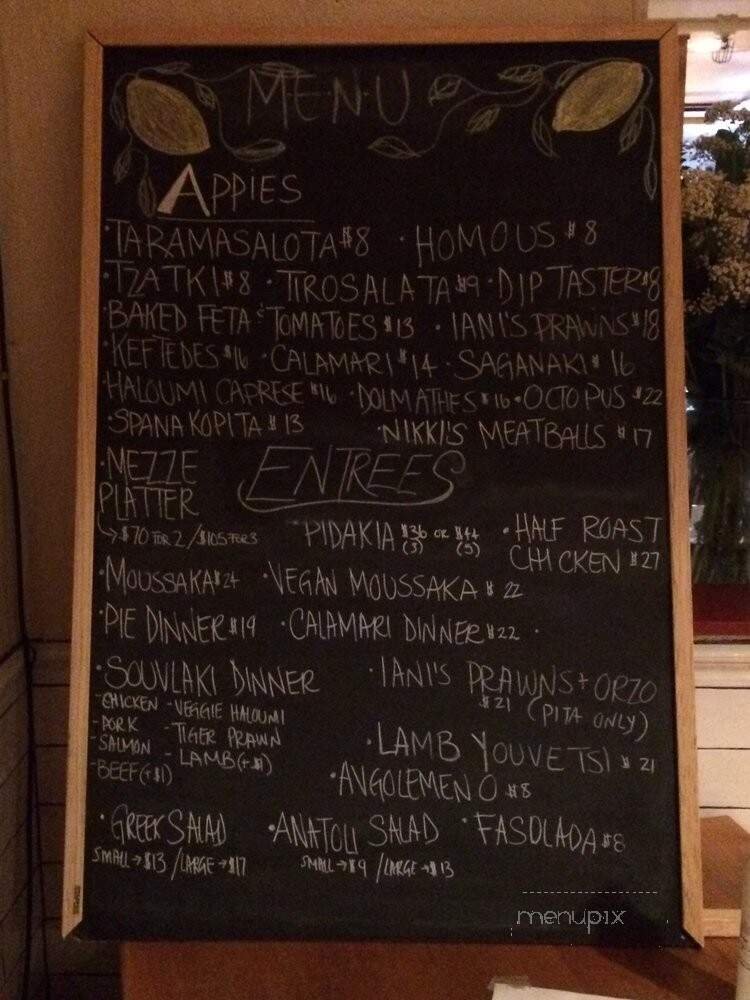 MENU
APPIES
·TARAMASALOTA $8 ·HOMOUS $8
·TZATKI $8 ·TIROSALATA $9 ·DIP TASTER $8
·BAKED FETA & TOMATOES $13 ·IANI'S PRAWNS $18
·KEFTEDES $16 ·CALAMARI $14 ·SAGANAKI $16
·HALOUMI CAPRESE $16 ·DOLMATHES $16 ·OCTOPUS $22
·SPANAKOPITA $13 ·NIKKI'S MEATBALLS $17
·MEZZE PLATTER
→$70 FOR 2 / $105 FOR 3
ENTREES
PIDAKIA $36 (3) OR $44 (5)
·HALF ROAST CHICKEN $27
·MOUSSAKA $24 ·VEGAN MOUSSAKA $22
·PIE DINNER $19 ·CALAMARI DINNER $22 ·
·SOUVLAKI DINNER
-CHICKEN -VEGGIE HALOUMI
-PORK -TIGER PRAWN
-SALMON -LAMB (+$1)
-BEEF (+$1)
·IANI'S PRAWNS + ORZO
$21 (PITA ONLY)
·LAMB YOUVETSI $21
·AVGOLEMENO $8
·GREEK SALAD ·ANATOLI SALAD ·FASOLADA $8
SMALL→$13 / LARGE→$17 SMALL→$9 / LARGE→$13
menupix